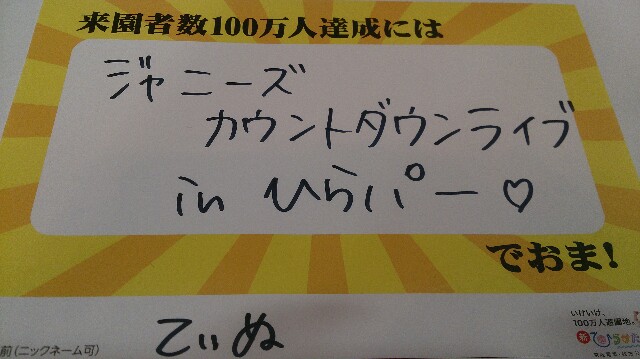 来園者数100万人達成には
ジャニーズ
カウントダウンライブ
in ひらパー♡
でおま!
前(ニックネーム可)
てぃぬ
いけいけ、
100万人遊園地。